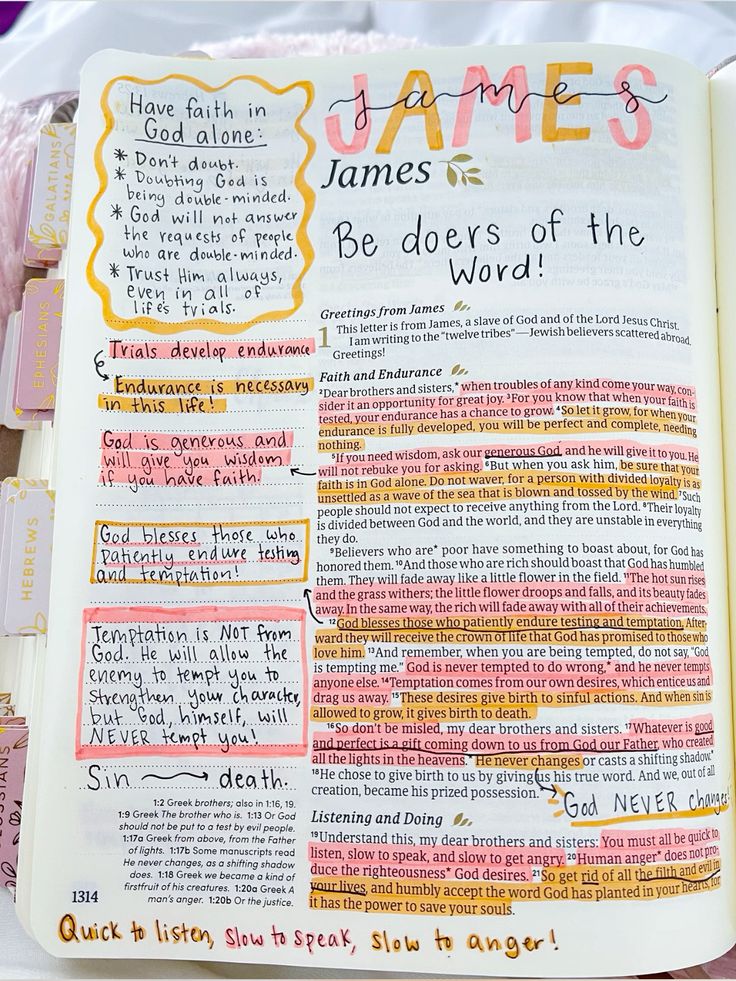 GALATIANS
EPHESIANS
HEBREWS
Have faith in
God alone:
* Don't doubt.
* Doubting God is
being double-minded.
* God will not answer
the requests of people
who are double-minded.
* Trust Him always,
even in all of
life's trials.
Trials develop endurance
Endurance is necessary
in this life!
God is generous and
will give you wisdom
if you have faith.
God blesses those who
patiently endure testing
and temptation!
Temptation is NOT from
God. He will allow the
enemy to tempt you to
strengthen your character,
but God, himself, will
NEVER tempt you!
Sin → death.
1:2 Greek brothers; also in 1:16, 19.
1:9 Greek The brother who is. 1:13 Or God
should not be put to a test by evil people.
1:17a Greek from above, from the Father
of lights. 1:17b Some manuscripts read
He never changes, as a shifting shadow
does. 1:18 Greek we became a kind of
firstfruit of his creatures. 1:20a Greek A
man's anger. 1:20b Or the justice.
1314
JAMES
james
James
Be doers of the
Word!
Greetings from James
1 This letter is from James, a slave of God and of the Lord Jesus Christ.
I am writing to the "twelve tribes"—Jewish believers scattered abroad.
Greetings!
Faith and Endurance
2Dear brothers and sisters,* when troubles of any kind come your way, con-
sider it an opportunity for great joy. 3For you know that when your faith is
tested, your endurance has a chance to grow. 4So let it grow, for when your
endurance is fully developed, you will be perfect and complete, needing
nothing.
5If you need wisdom, ask our generous God, and he will give it to you. He
will not rebuke you for asking. 6But when you ask him, be sure that your
faith is in God alone. Do not waver, for a person with divided loyalty is as
unsettled as a wave of the sea that is blown and tossed by the wind. 7Such
people should not expect to receive anything from the Lord. 8Their loyalty
is divided between God and the world, and they are unstable in everything
they do.
9Believers who are* poor have something to boast about, for God has
honored them. 10And those who are rich should boast that God has humbled
them. They will fade away like a little flower in the field. 11The hot sun rises
and the grass withers; the little flower droops and falls, and its beauty fades
away. In the same way, the rich will fade away with all of their achievements.
12God blesses those who patiently endure testing and temptation. After-
ward they will receive the crown of life that God has promised to those who
love him. 13And remember, when you are being tempted, do not say, "God
is tempting me." God is never tempted to do wrong,* and he never tempts
anyone else. 14Temptation comes from our own desires, which entice us and
drag us away. 15These desires give birth to sinful actions. And when sin is
allowed to grow, it gives birth to death.
16So don't be misled, my dear brothers and sisters. 17Whatever is good
and perfect is a gift coming down to us from God our Father, who created
all the lights in the heavens.* He never changes or casts a shifting shadow.*
18He chose to give birth to us by giving us his true word. And we, out of all
creation, became his prized possession.*
God NEVER changes!
Listening and Doing
19Understand this, my dear brothers and sisters: You must all be quick to
listen, slow to speak, and slow to get angry. 20Human anger* does not pro-
duce the righteousness* God desires. 21So get rid of all the filth and evil in
your lives, and humbly accept the word God has planted in your hearts, for
it has the power to save your souls.
Quick to listen, slow to speak, slow to anger!